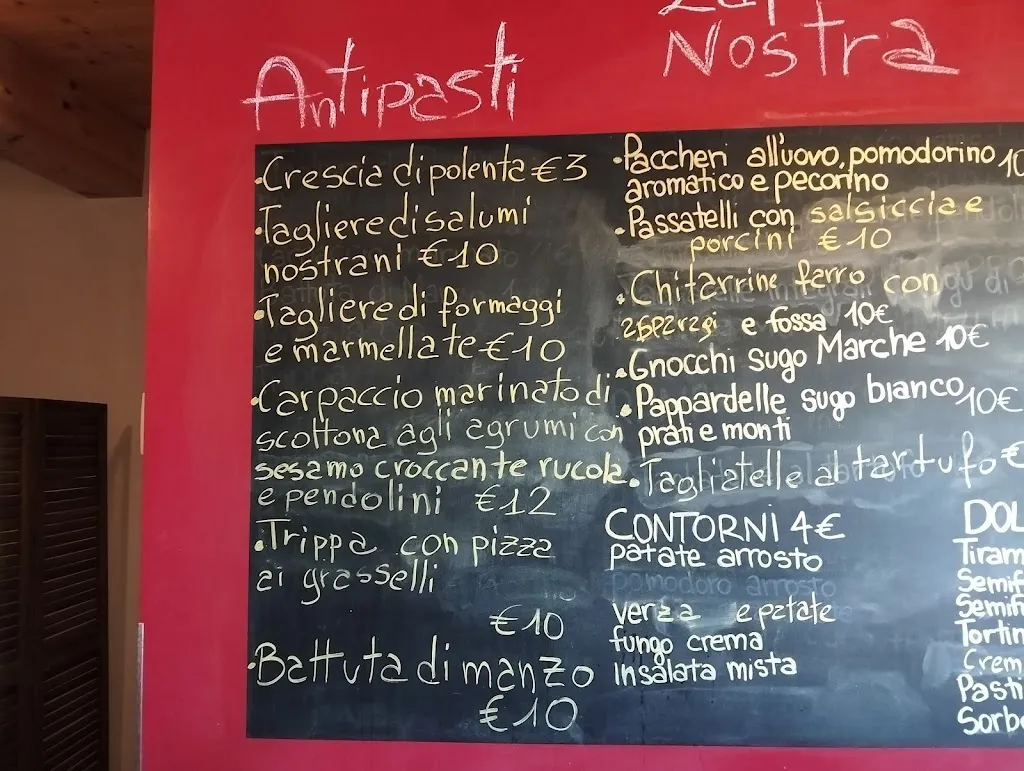 Antipasti
• Crescia di polenta €3
• Tagliere di salumi
nostrani €10
• Tagliere di formaggi
e marmellate €10
• Carpaccio marinato di
scottona agli agrumi con
sesamo croccante rucola
e pendolini €12
• Trippa con pizza
ai grasselli
€10
• Battuta di manzo
€10
Nostra
• Paccheri all'uovo, pomodorino 10
aromatico e pecorino
• Passatelli con salsiccia e
porcini €10
• Chitarrine farro con
asparagi e fossa 10€
• Gnocchi sugo Marche 10€
• Pappardelle sugo bianco 10€
prati e monti
• Tagliatelle al tartufo €
CONTORNI 4€
patate arrosto
pomodoro arrosto
verza e patate
fungo crema
Insalata mista
DOL
Tiram
Semif
Semif
Tortin
Crem
Pasti
Sorbe